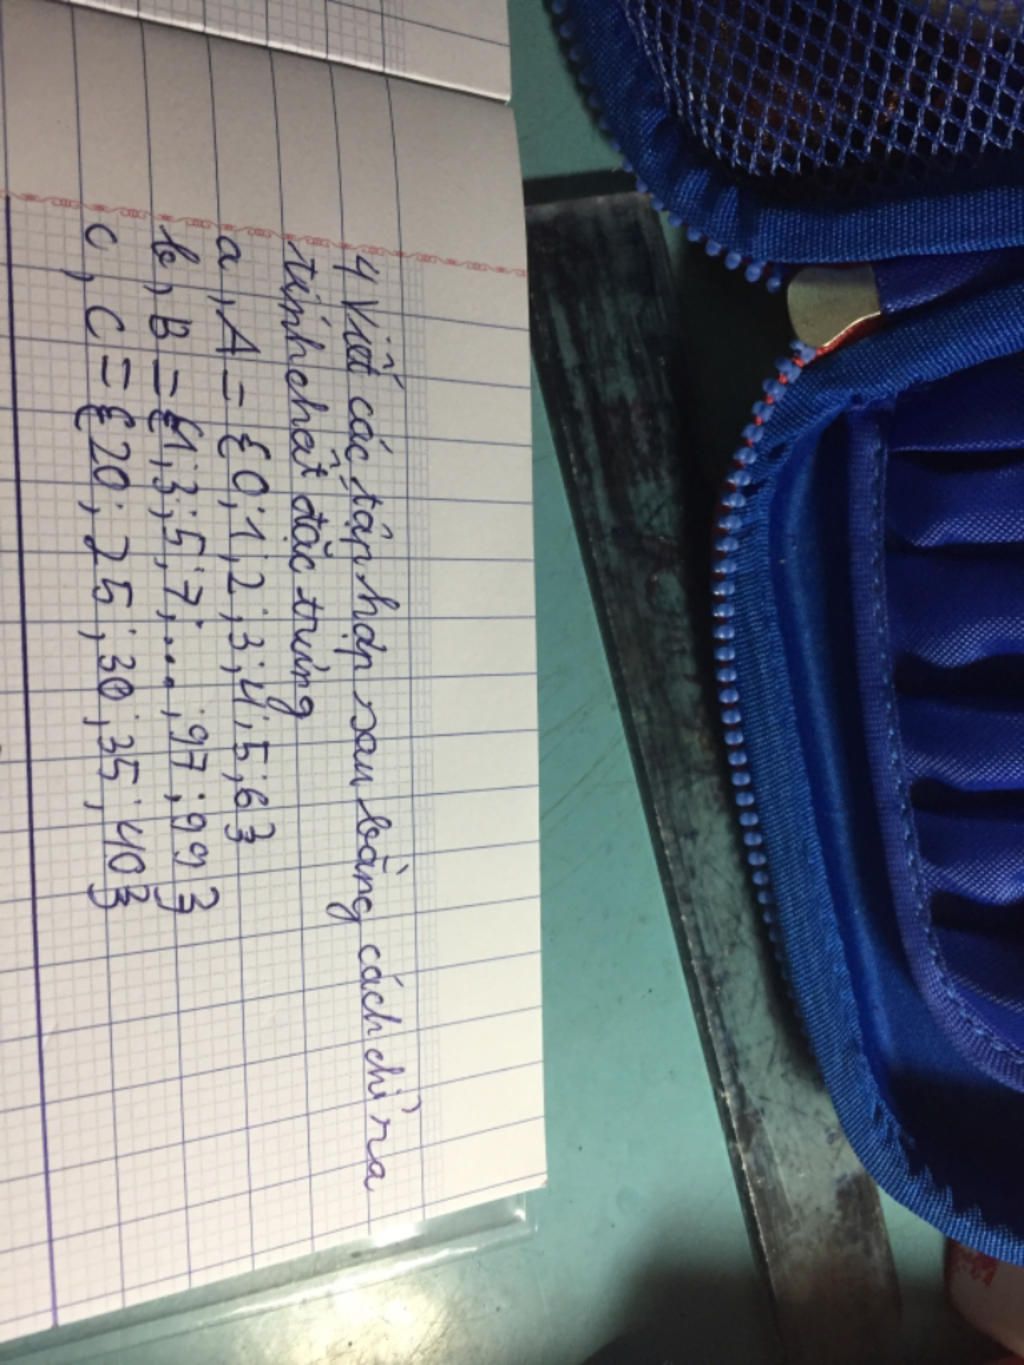 4 Viết các tập hợp sau bằng cách chỉ ra
tính chất đặc trưng
a, A = {0;1;2;3;4;5;6}
b, B = {1;3;5;7;...;97;99}
c, C = {20;25;30;35;40}